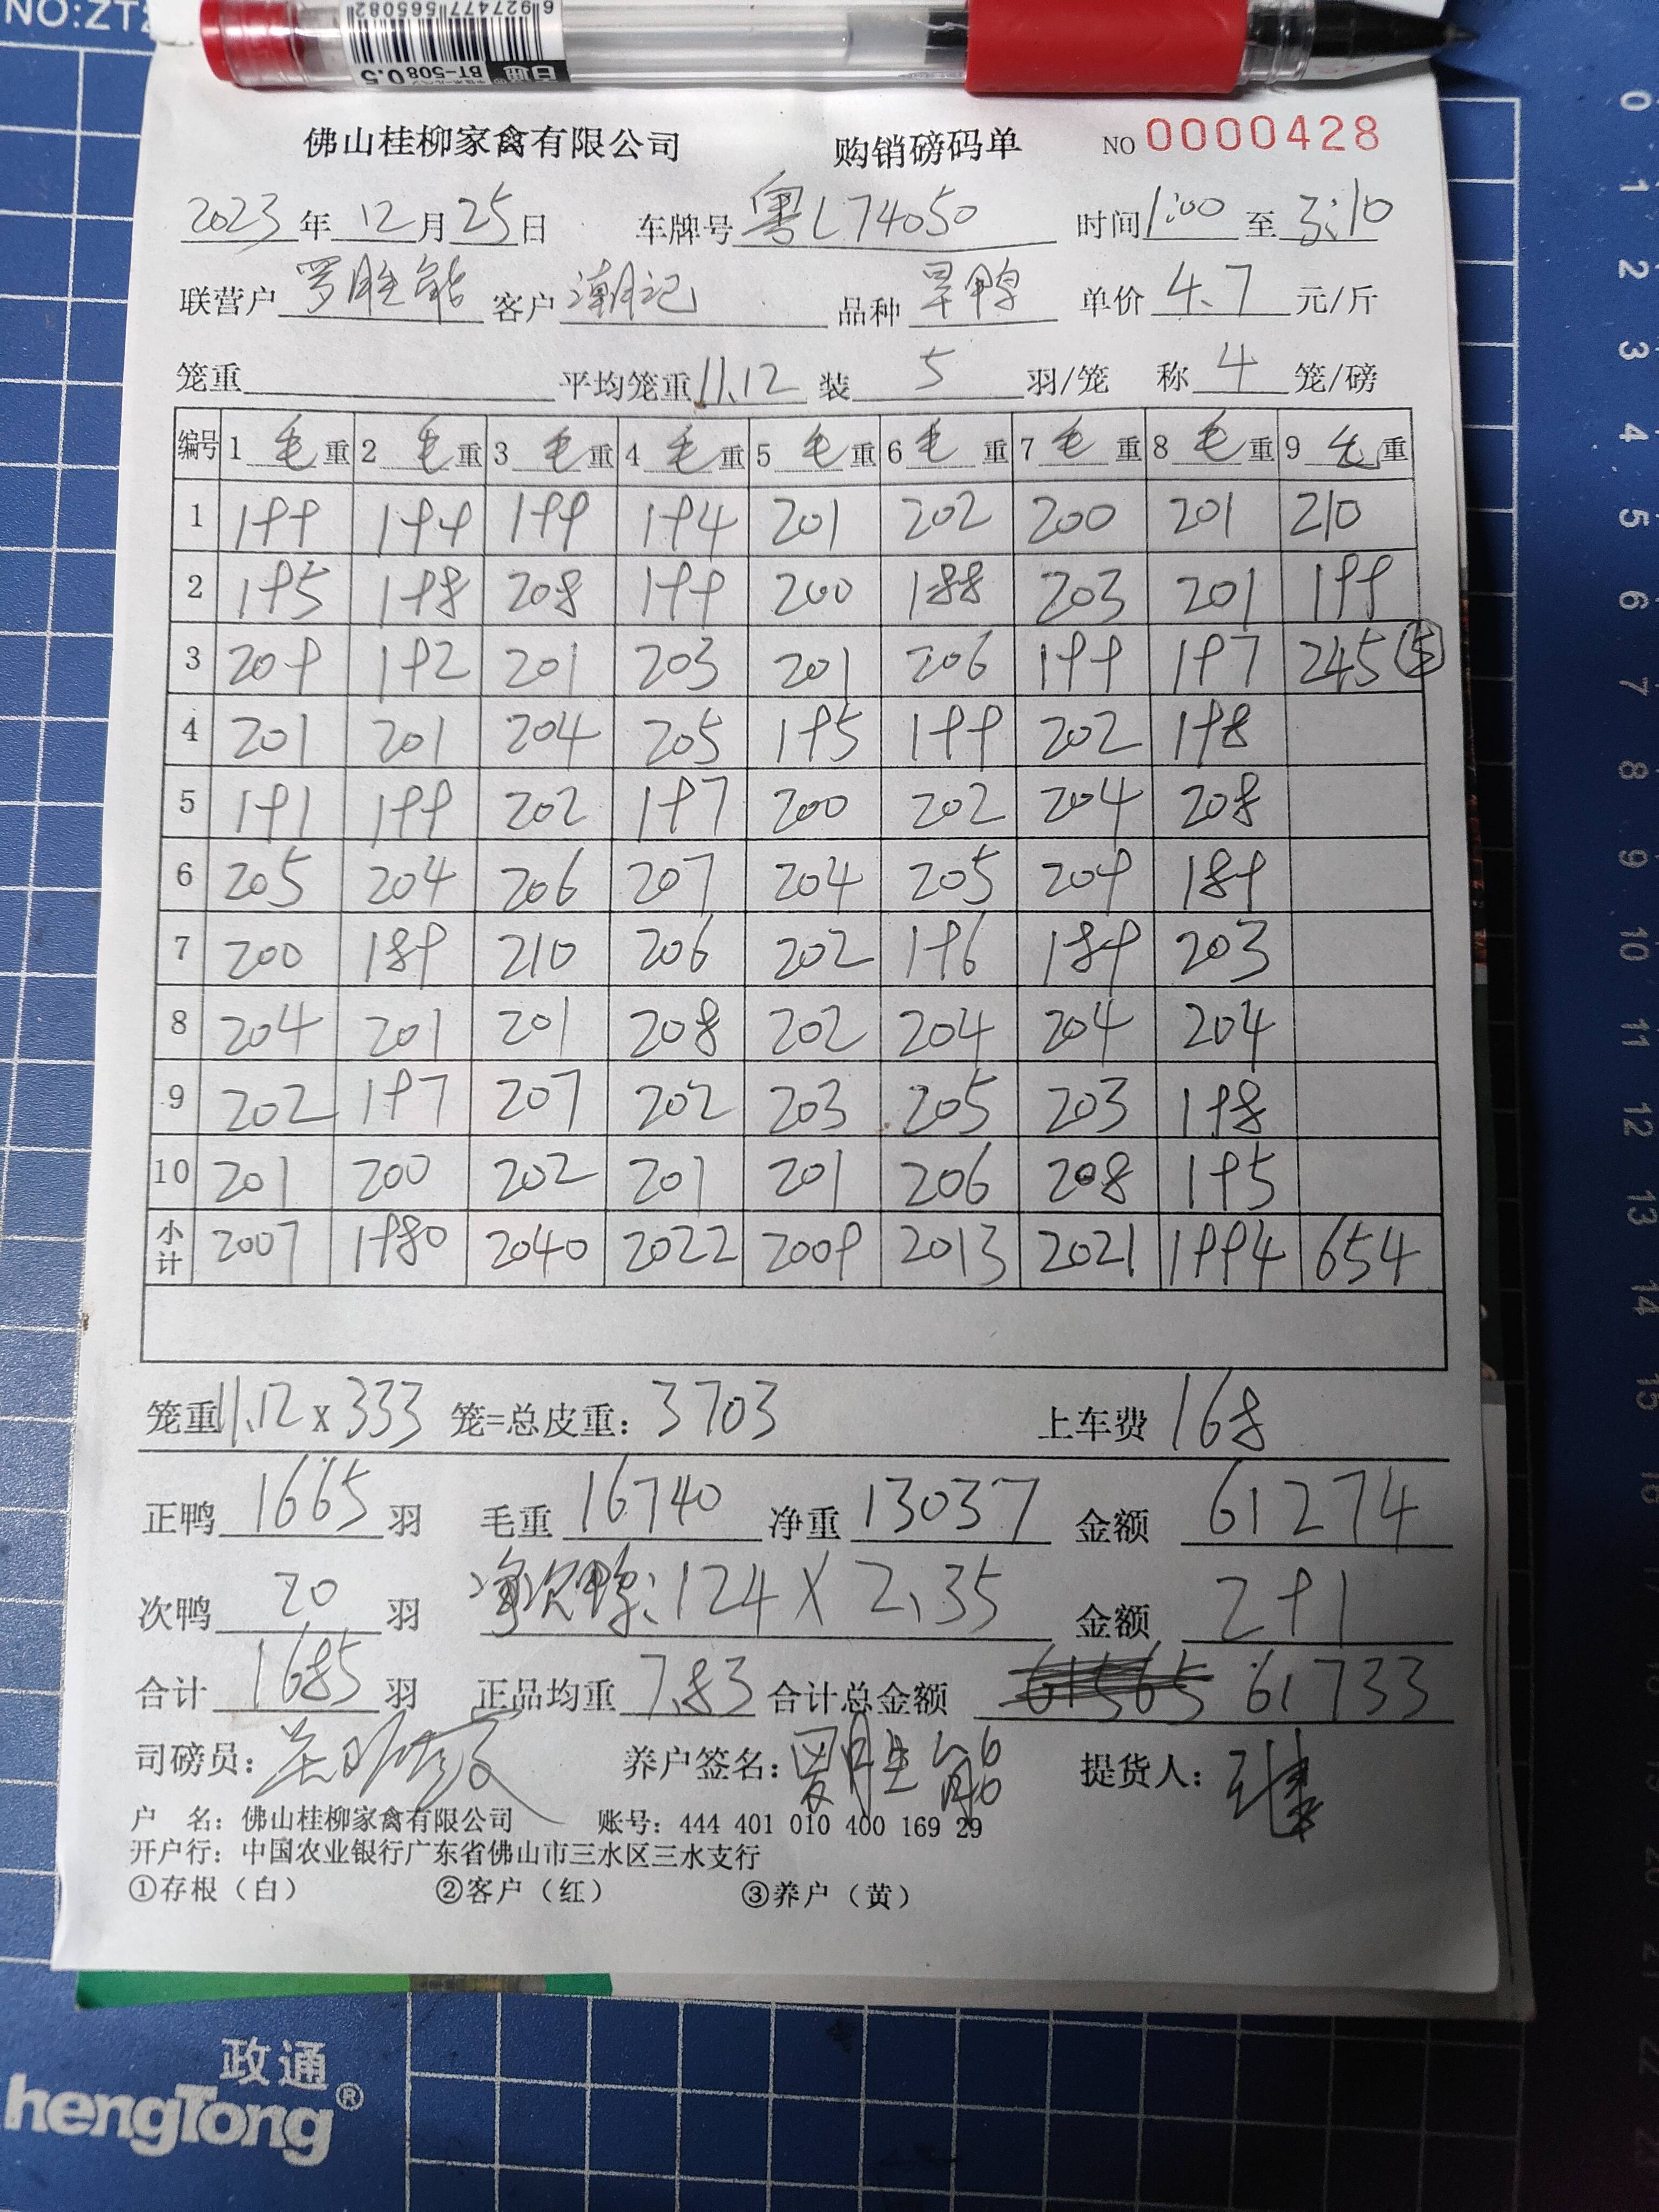 NO:ZT
6927477565082
BT-508 0.5
佛山桂柳家禽有限公司 购销磅码单 NO 0000428
2023年12月25日 车牌号粤L74050 时间1:00至3:10
联营户罗胜能 客户潮记 品种旱鸭 单价4.7元/斤
笼重 平均笼重11.12 装5羽/笼 称4笼/磅
编号 1毛重 2毛重 3毛重 4毛重 5毛重 6毛重 7毛重 8毛重 9毛重
1 199 194 199 194 201 202 200 201 210
2 195 198 208 199 200 188 203 201 199
3 209 192 201 203 201 206 199 197 245⑤
4 201 201 204 205 195 199 202 198
5 191 199 202 197 200 202 204 208
6 205 204 206 207 204 205 209 189
7 200 189 210 206 202 196 189 203
8 204 201 201 208 202 204 204 204
9 202 197 207 202 203 205 203 198
10 201 200 202 201 201 206 208 195
小计 2007 1980 2040 2022 2009 2013 2021 1994 654
笼重11.12x333笼=总皮重:3703 上车费168
正鸭1665羽 毛重16740 净重13037 金额61274
次鸭20羽 净次鸭:124X2.35 金额291
合计1685羽 正品均重7.83 合计总金额 61565 61733
司磅员: 养户签名:罗胜能 提货人:
户 名:佛山桂柳家禽有限公司 账号:444 401 010 400 169 29
开户行:中国农业银行广东省佛山市三水区三水支行
①存根(白) ②客户(红) ③养户(黄)
0 1 2 3 4 5 6 7 8 9 10 11 12 13 14 15 16 17 18 19 20 21 22 23
政通
hengTong®